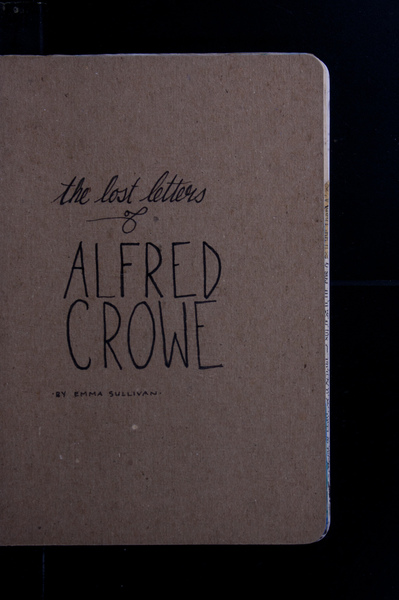 the lost letters
of
ALFRED
CROWE
·BY EMMA SULLIVAN·